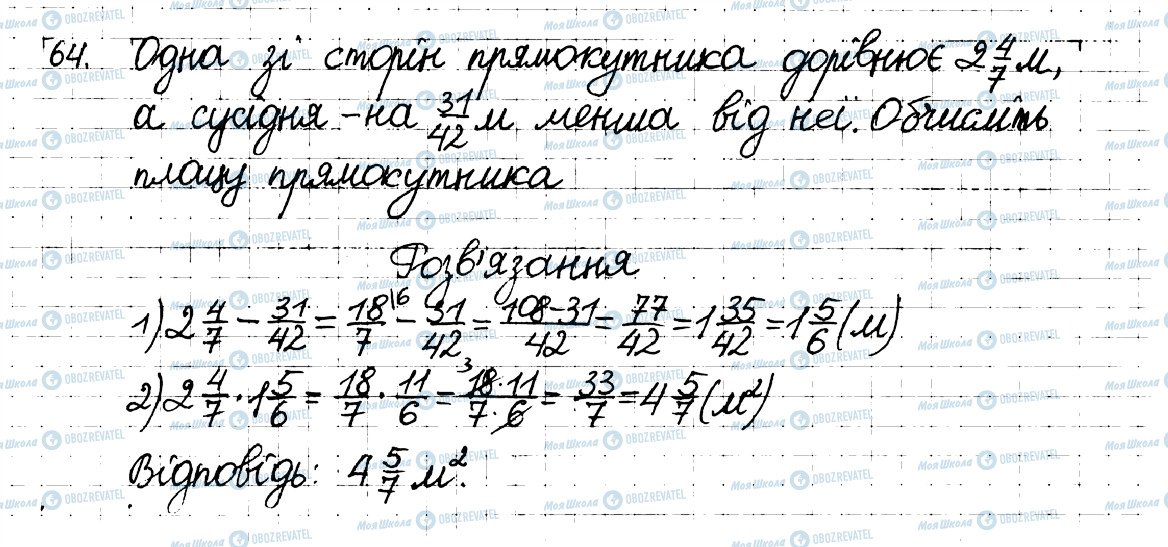 64. Одна зі сторін прямокутника дорівнює 2 4/7 м,
а сусідня – на 31/42 м менша від неї. Обчисліть
площу прямокутника
Розв'язання
1) 2 4/7 − 31/42 = 18/7 ^(6 − 31/42 = 108−31/42 = 77/42 = 1 35/42 = 1 5/6 (м)
2) 2 4/7 · 1 5/6 = 18/7 · 11/6 = ³18·11/7·6 = 33/7 = 4 5/7 (м²)
Відповідь: 4 5/7 м².
Моя Школа OBOZREVATEL